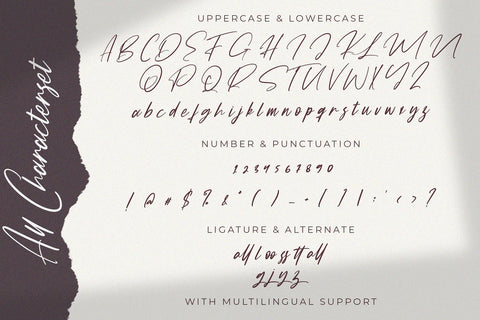 All Characterset
UPPERCASE & LOWERCASE
ABCDEFGHIJKLMN
OPQRSTUVWXYZ
abcdefghijklmnopqrstuvwxyz
NUMBER & PUNCTUATION
1234567890
! @ # $ % & * ( ) _ - = [ ] | : ' < > ?
LIGATURE & ALTERNATE
WITH MULTILINGUAL SUPPORT